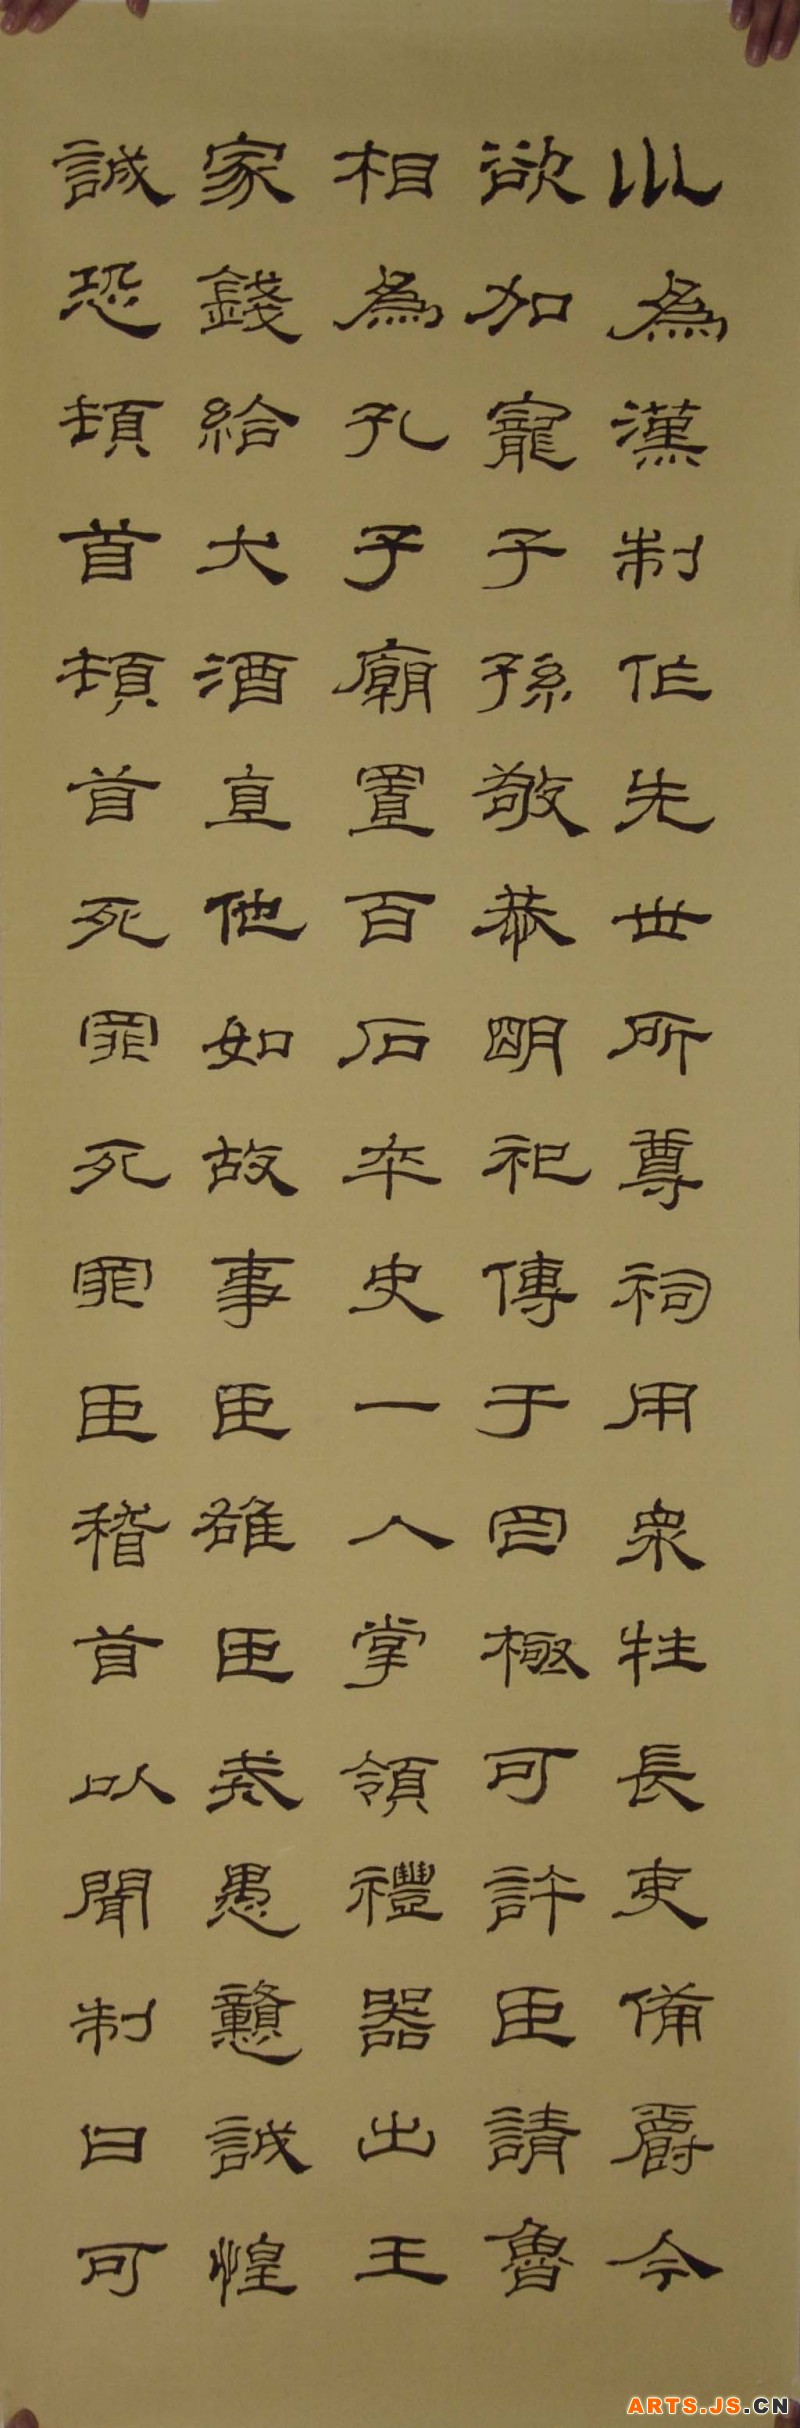 巛為漢制作先世所尊祠用衆牲長吏備爵今
欲加寵子孫敬恭明祀傳于罔極可許臣請魯
相為孔子廟置百石卒史一人掌領禮器出王
家錢給犬酒直他如故事臣雄臣戒愚戇誠惶
誠恐頓首頓首死罪死罪臣稽首以聞制曰可
ARTS.JS.CN